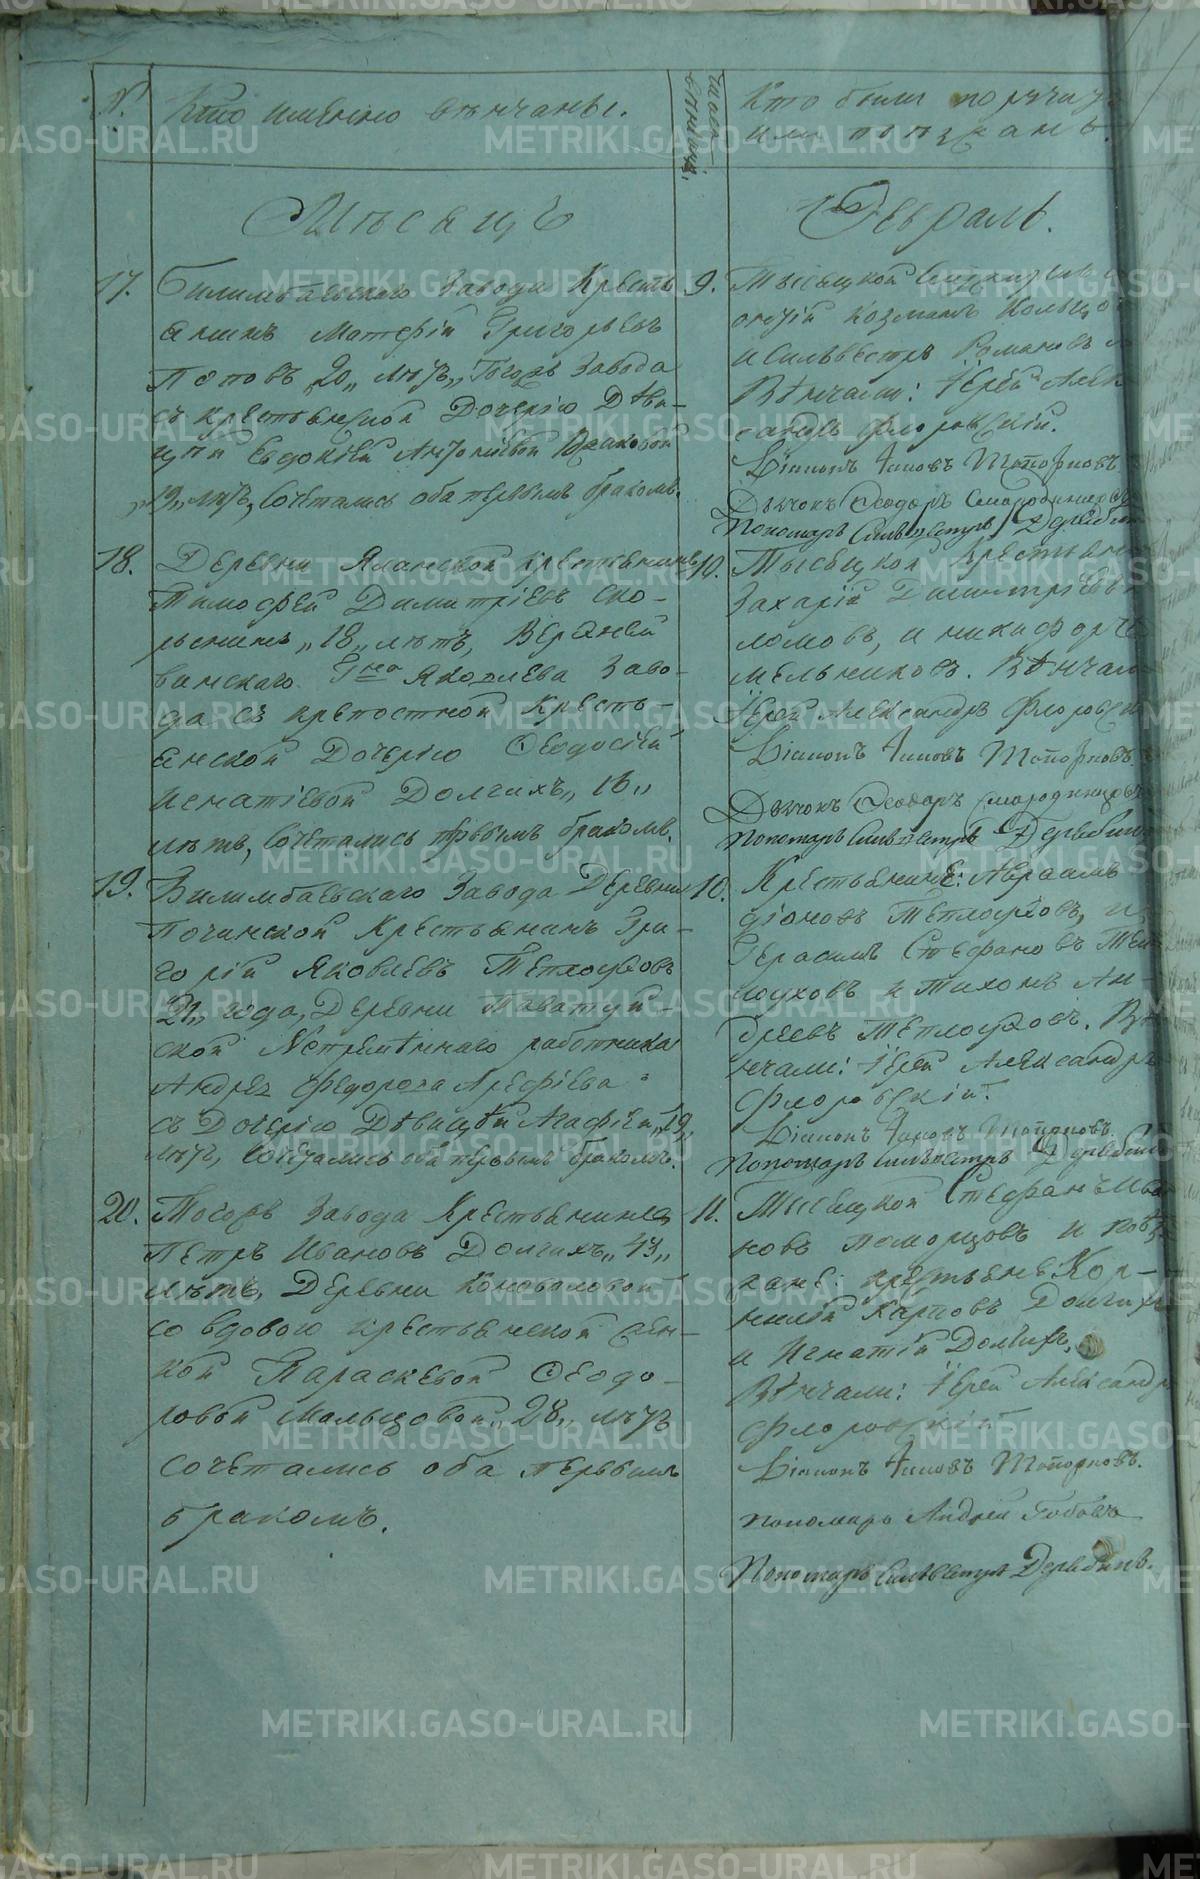 №
Кто имянно венчаны.
число венчания.
Кто были поручи
или поезжанъ.
Мѣсяцъ
Февраль.
17.
Билимбаевскаго Завода Кресть
янинъ Матфій Григорьевъ
Поповъ „20„ лѣтъ, Тогожъ Завода
съ крестьянской Дочерію Дѣви-
цѣй Евдокіей Антоніевой
„19„ лѣтъ, Сочетались оба первымъ бракомъ.
9.
Тысецкой
Козминъ Кольцо
и Сильвестръ Романовъ
Вѣнчали: Іерей Алек
сандръ Флоровскій.
Діаконъ Іаковъ Топорновъ
Дьячокъ Феодоръ Смородинцовъ
Пономарь Сильвестръ Дерябинъ
18.
Деревни Крестьянинъ
Тимофей Димитріевъ Ско-
рынинъ „18„ лѣтъ, Верхней
винскаго Гна Яковлева Заво-
да съ крепостной Кресть-
янской Дочерію Феодосіей
Игнатіевой Долгихъ „18„
лѣтъ, Сочетались первымъ бракомъ.
10.
Тысецкой Крестьян
Захарій Димитріевъ
ломовъ, и Никифоръ
мельниковъ. Вѣнчали
Іерей Александръ Флоровскій
Діаконъ Іаковъ Топорновъ
Дьячокъ Феодоръ Смородинцовъ
Пономарь Сильвестръ Дерябинъ
19.
Билимбаевскаго Завода Деревни
Починской Крестьянинъ Гри-
горій Яковлевъ Теплоуховъ
„21„ года, Деревни Таватуй-
ской Непремѣннаго работника
Андрея Федорова Арефіева
съ Дочерію Дѣвицѣй Агафіей „19„
лѣтъ, Сочетались оба первымъ бракомъ.
10.
Крестьяне: Авраамъ
діоновъ Теплоуховъ, и
Герасимъ Стефановъ Теп
лоуховъ и Тихонъ Ан-
дреевъ Теплоуховъ. Вѣ
нчали: Іерей Александръ
Флоровскій.
Діаконъ Іаковъ Топорновъ
Пономарь Сильвестръ Дерябинъ
20.
Тогожъ Завода Крестьянинъ
Петръ Ивановъ Долгихъ „43„
лѣтъ, Деревни Коноваловой
со вдовою крестьянской жен-
кой Параскевой Феодо-
ровой Мальцовой „28„ лѣтъ
сочетались оба первымъ
бракомъ.
11.
Тысецкой Стефанъ Ива
новъ поморцовъ и поѣз
жане: крестьяне Кор-
нилій Карповъ Долгихъ
и Игнатій Долгихъ,
Вѣнчали: Іерей Александръ
Флоровскій
Діаконъ Іаковъ Топорновъ.
Пономарь Андрей
Пономарь Сильвестръ Дерябинъ.
METRIKI.GASO-URAL.RU